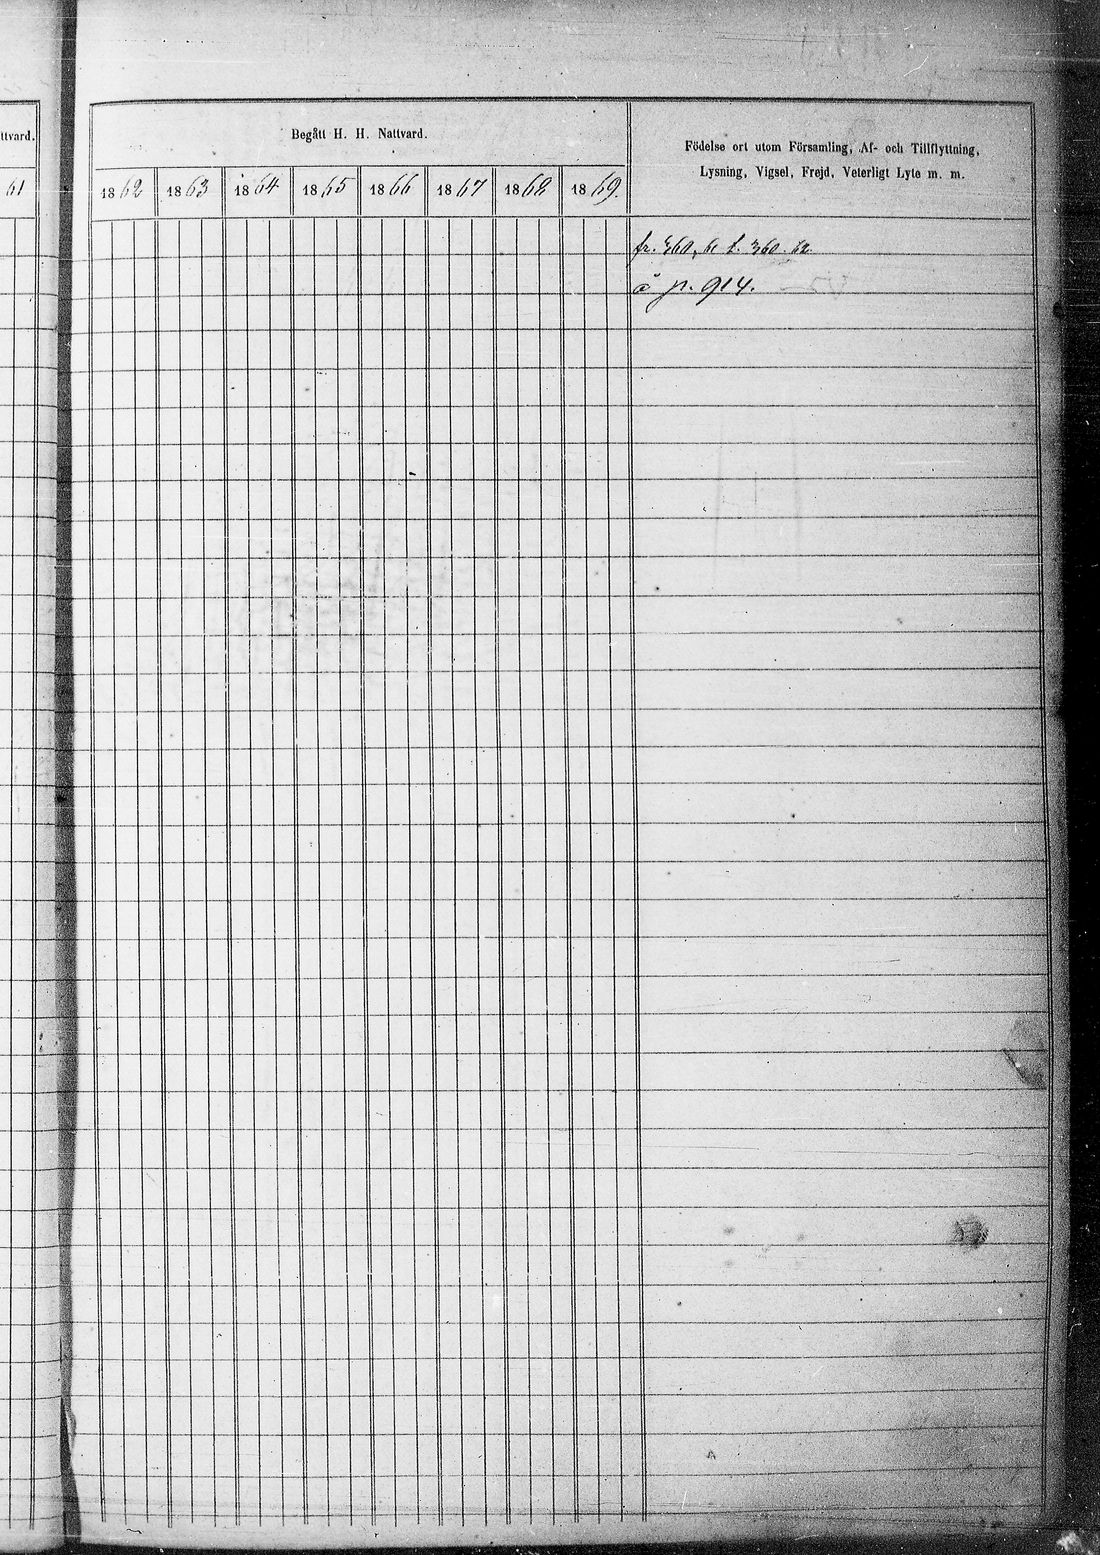 ttvard.
61
Begått H. H. Nattvard.
Födelse ort utom Församling, Af- och Tillflyttning,
Lysning, Vigsel, Frejd, Veterligt Lyte m. m.
1862 1863 1864 1865 1866 1867 1868 1869.
fr. 360, 61 t. 360. 62
å p. 914.